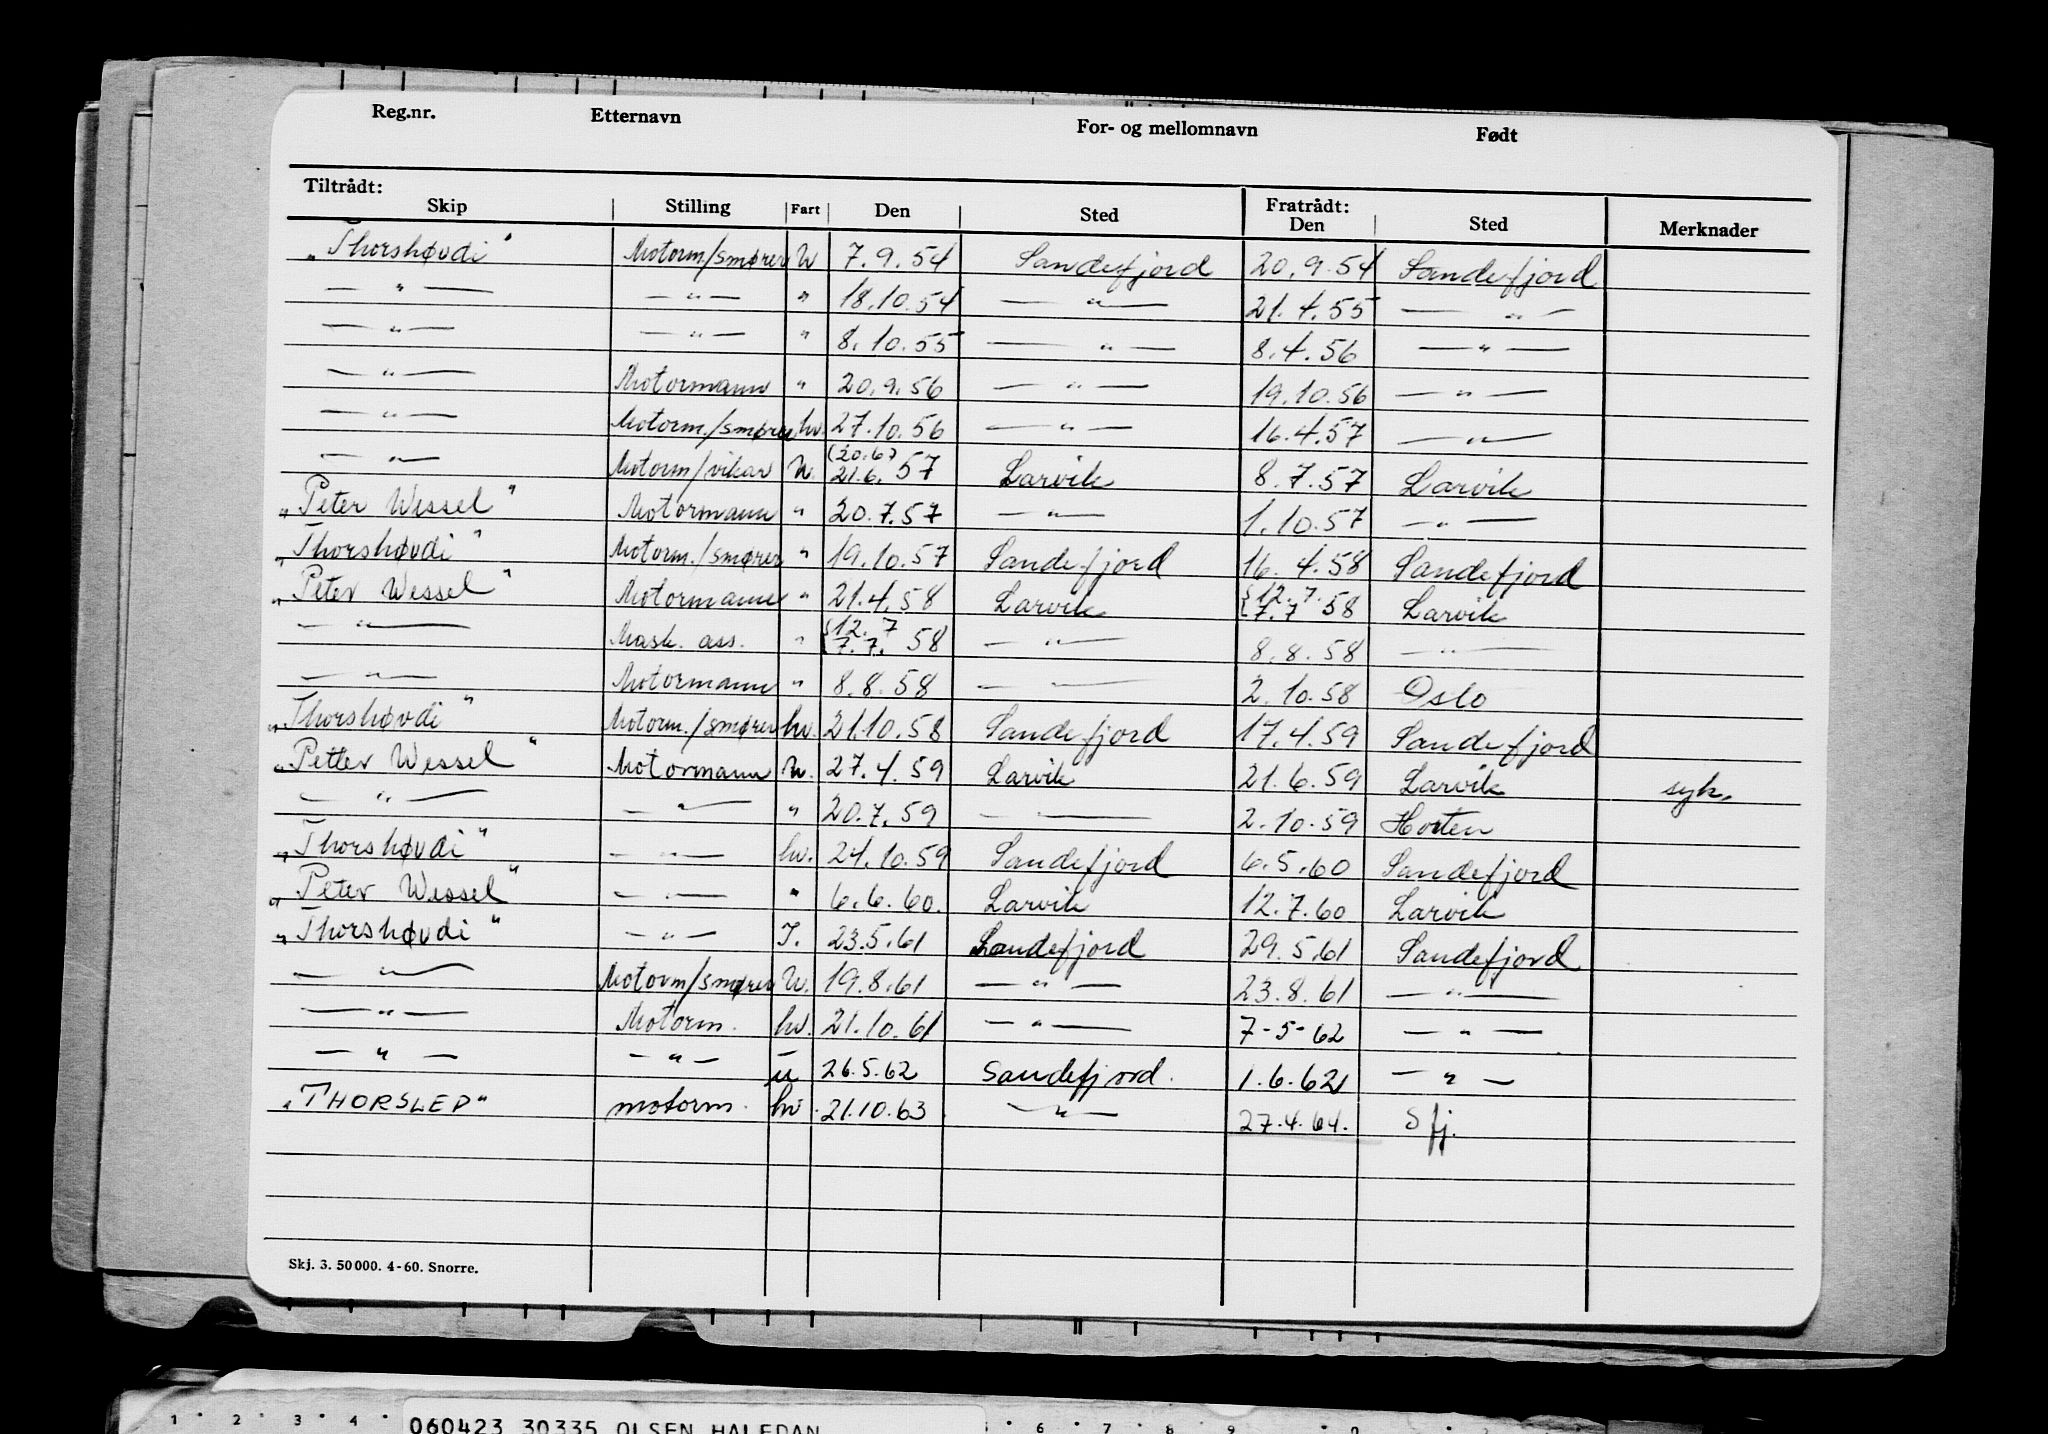 Reg.nr. Etternavn For- og mellomnavn Født
Tiltrådt: Fratrådt:
Skip Stilling Fart Den Sted Den Sted Merknader
"Thorshøvdi" Motorm./smører U 7.9.54 Sandefjord 20.9.54 Sandefjord
—"— —"— " 18.10.54 —"— 21.4.55 —"—
—"— —"— " 8.10.55 —"— 8.4.56 —"—
—"— Motormann " 20.9.56 —"— 19.10.56 —"—
—"— Motorm./smører hv. 27.10.56 —"— 16.4.57 —"—
—"— Motorm/vikar U. (20.6) 21.6.57 Larvik 8.7.57 Larvik
"Peter Wessel" Motormann " 20.7.57 —"— 1.10.57 —"—
"Thorshøvdi" Motorm./smører " 19.10.57 Sandefjord 16.4.58 Sandefjord
"Peter Wessel" Motormann " 21.4.58 Larvik {12.7. 7.7 58 Larvik
—"— Mask. ass. " {12.7 7.7. 58 —"— 8.8.58 —"—
—"— Motormann " 8.8.58 —"— 2.10.58 Oslo
"Thorshøvdi" Motorm./smører hv. 21.10.58 Sandefjord 17.4.59 Sandefjord
"Petter Wessel" Motormann U. 27.4.59 Larvik 21.6.59 Larvik syk.
—"— —"— " 20.7.59 —"— 2.10.59 Horten
"Thorshøvdi" —"— hv. 24.10.59 Sandefjord 6.5.60 Sandefjord
"Peter Wessel" —"— " 6.6.60. Larvik 12.7.60 Larvik
"Thorshøvdi" —"— I. 23.5.61 Sandefjord 29.5.61 Sandefjord
—"— Motorm/smører U. 19.8.61 —"— 23.8.61 —"—
—"— Motorm. hv. 21.10.61 —"— 7-5-62 —"—
—"— —"— u 26.5.62 Sandefjord. 1.6.62 —"—
"THORSLEP" motorm. hv. 21.10.63 —"— 27.4.64. Sfj.
Skj. 3. 50 000. 4-60. Snorre.
1 2 3 4 060423 30335 OLSEN HALFDAN 6 7 8 9